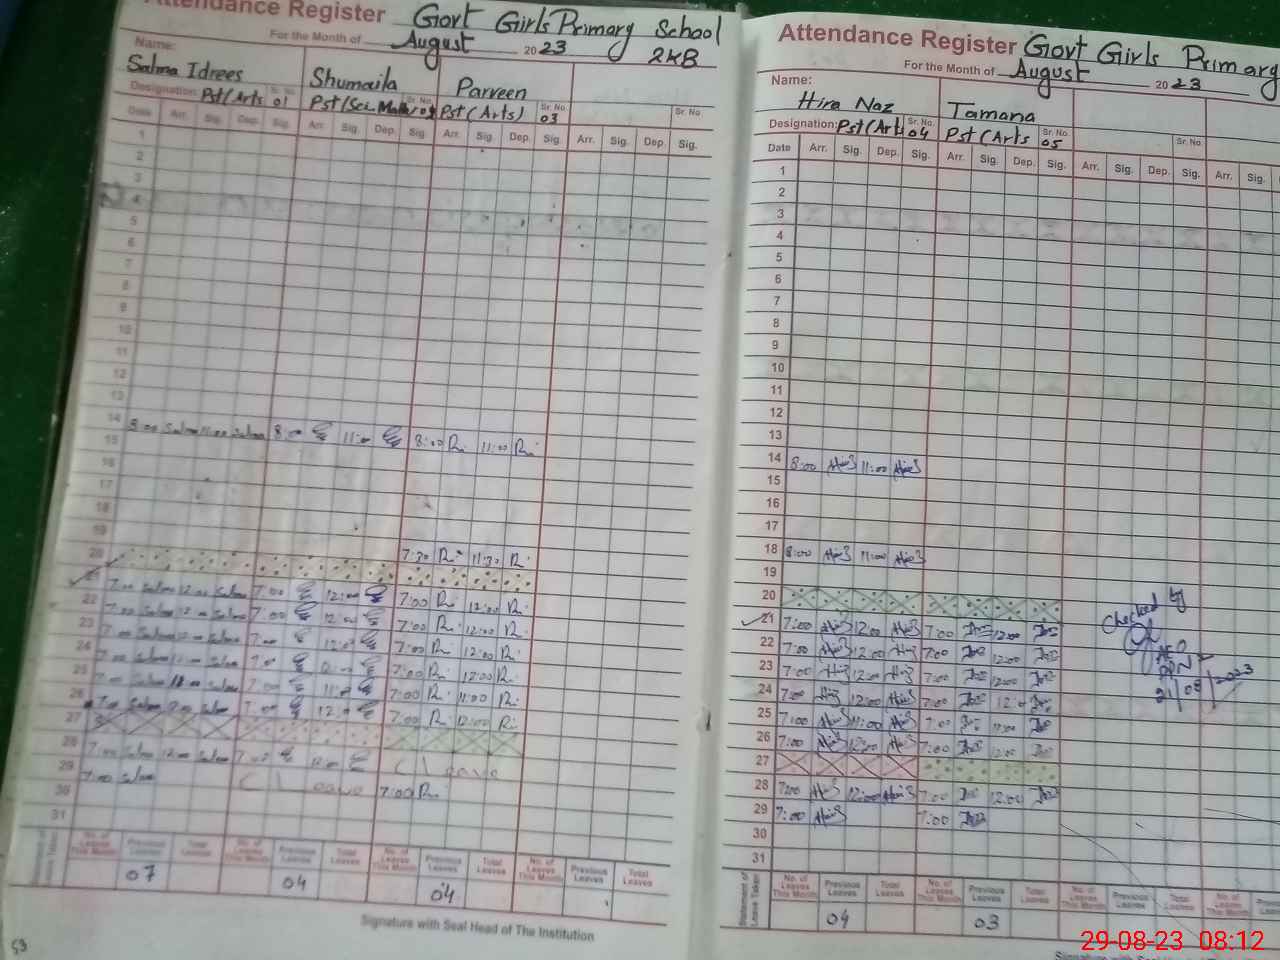 Attendance Register Govt Girls Primary School
For the Month of August 2023 2KB
Name: Salma Idrees Shumaila Parveen
Designation: Pst(Arts Sr. No. 01 Pst(Sci. Math Sr. No. Pst(Arts) Sr. No. 03 Sr. No.
Date Arr. Sig. Dep. Sig. Arr. Sig. Dep. Sig. Arr. Sig. Dep. Sig. Arr. Sig. Dep. Sig.
1
2
3
4
5
6
7
8
9
10
11
12
13
14 8:00 Salma 11:00 Salma 8:00 11:00 8:00 11:00
15
16
17
18
19 7:30 11:30
20
21 7:00 Salma 12:00 Salma 7:00 12:00 7:00 12:00
22 7:00 Salma 12:00 Salma 7:00 12:00 7:00 12:00
23 7:00 Salma 12:00 Salma 7:00 12:00 7:00 12:00
24 7:00 Salma Salma 7:00 12:00 7:00 12:00
25 7:00 Salma Salma 7:00 11:00 7:00 11:00
26 7:00 Salma Salma 7:00 12:00 7:00 12:00
27
28 7:00 Salma 12:00 Salma 7:00 12:00 Cl leave
29 7:00 Salma Cl leave 7:00
30
31
No. of Leaves This Month Previous Leaves Total Leaves No. of Leaves This Month Previous Leaves Total Leaves No. of Leaves This Month Previous Leaves Total Leaves No. of Leaves This Month Previous Leaves Total Leaves
07 04 04
Signature with Seal Head of The Institution
53
Attendance Register Govt Girls Primary
For the Month of August 2023
Name: Hira Naz Tamana
Designation: Pst(Art Sr. No. 04 Pst(Arts Sr. No. 05 Sr. No.
Date Arr. Sig. Dep. Sig. Arr. Sig. Dep. Sig. Arr. Sig. Dep. Sig. Arr. Sig.
1
2
3
4
5
6
7
8
9
10
11
12
13
14 8:00 11:00
15
16
17
18 8:00 11:00
19
20
21 7:00 12:00 7:00 12:00
22 7:00 12:00 7:00 12:00
23 7:00 12:00 7:00 12:00
24 7:00 12:00 7:00 12:00
25 7:00 11:00 7:00 11:00
26 7:00 12:00 7:00 12:00
27
28 7:00 12:00 7:00 12:00
29 7:00 7:00
30
31
Checked by
21/08/2023
Statement of Leave Taken No. of Leaves This Month Previous Leaves Total Leaves No. of Leaves This Month Previous Leaves Total Leaves No. of Leaves This Month Previous Leaves Total Leaves No. of Leaves This Month
04 03
Signature with Seal
29-08-23 08:12